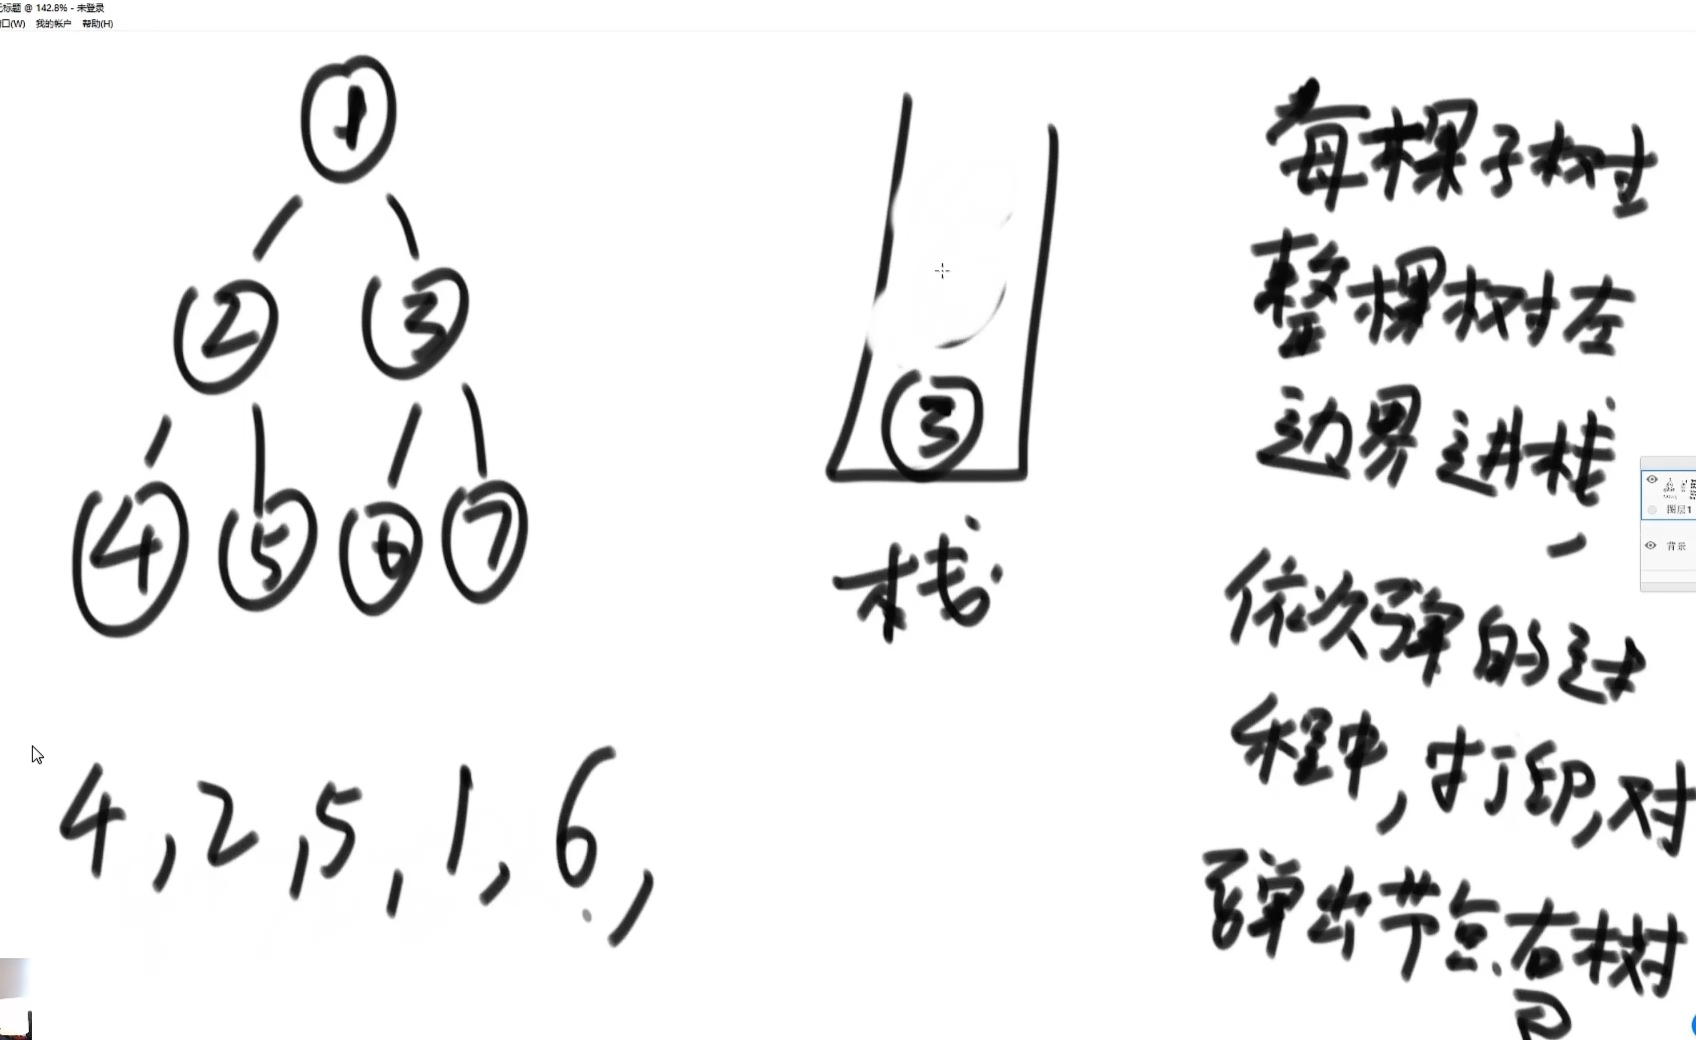 无标题 @ 142.8% - 未登录
窗口(W) 我的帐户 帮助(H)
1
2 3
4 5 6 7
3
栈
4,2,5,1,6,
每棵子树
整棵树左
边界进栈,
依次弹的过
程中,打印,对
弹出节点右树
图层1
背景